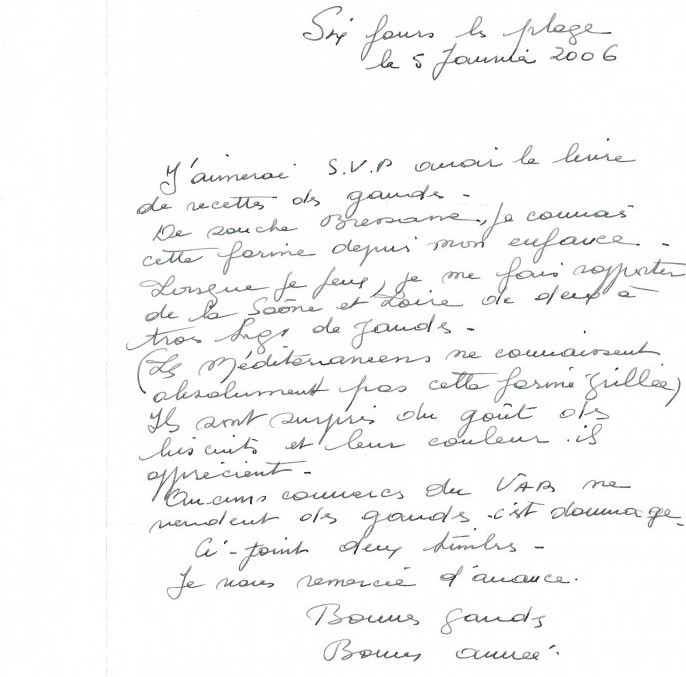 Six fours les plage
le 5 Janvier 2006
J'aimerai S.V.P avoir le livre
de recettes des gaudes.
De souche Bressane, je connais
cette farine depuis mon enfance.
Lorsque je peux, je me fais rapporter
de la Saône et Loire de deux à
trois kgs de Gaudes.
(Les Méditerranéens ne connaissent
absolument pas cette farine grillée)
Ils sont surpris du goût des
biscuits et leur couleur. ils
apprécient.
Aucuns commerces du VAR ne
vendent des gaudes. c'est dommage.
Ci-joint deux timbres.
Je vous remercie d'avance.
Bonnes gaudes
Bonne année.